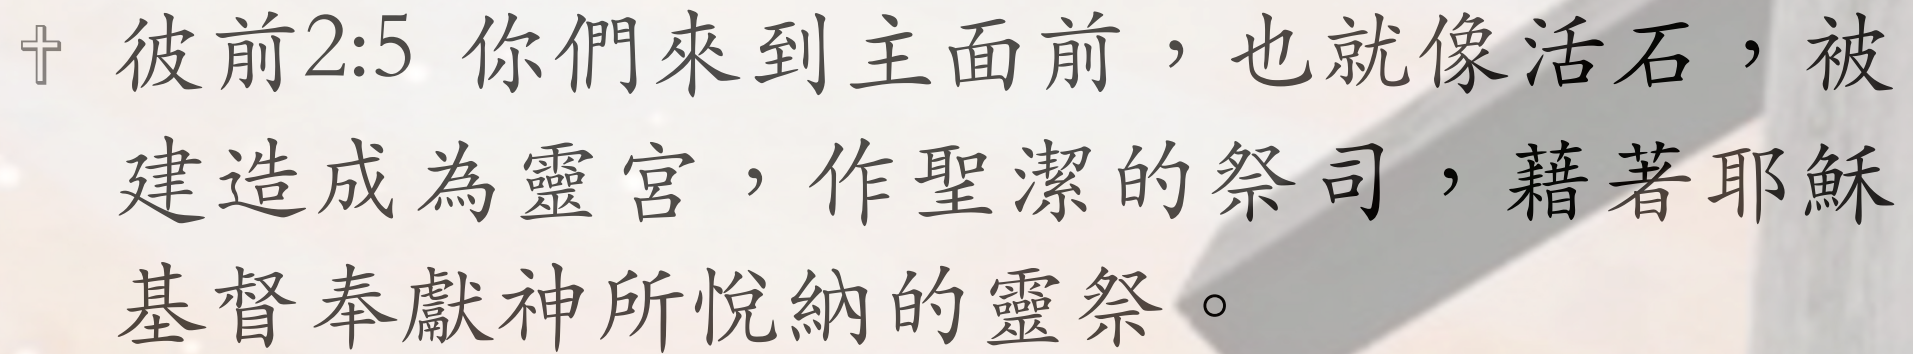 彼前2:5 你們來到主面前，也就像活石，被
建造成為靈宮，作聖潔的祭司，藉著耶穌
基督奉獻神所悅納的靈祭。